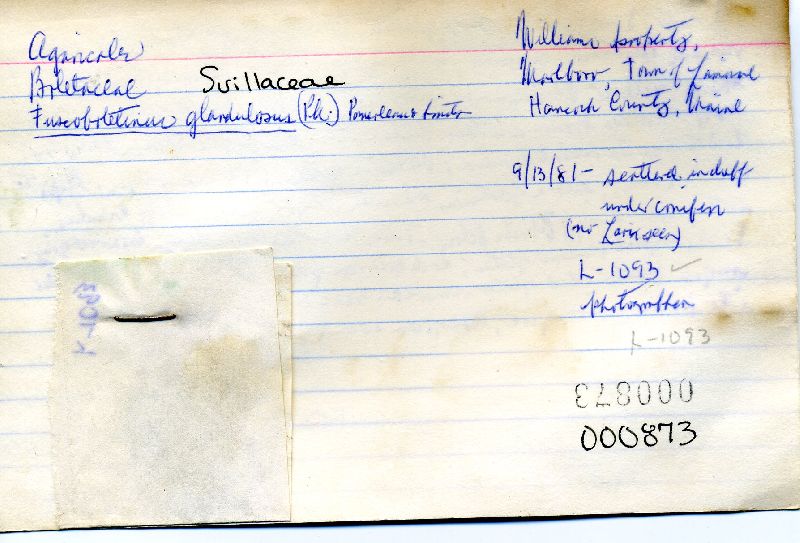 Agaricales
Boletaceae Suillaceae
Fuscoboletinus glandulosus (Pk.) Pomerleau & Smith
Williams property,
Marlboro, Town of Lamoine
Hancock County, Maine
9/13/81 - scattered in duff
under conifers
(no Larix seen)
L-1093 ✓
photographed
L-1093
000873
000873
L-1093